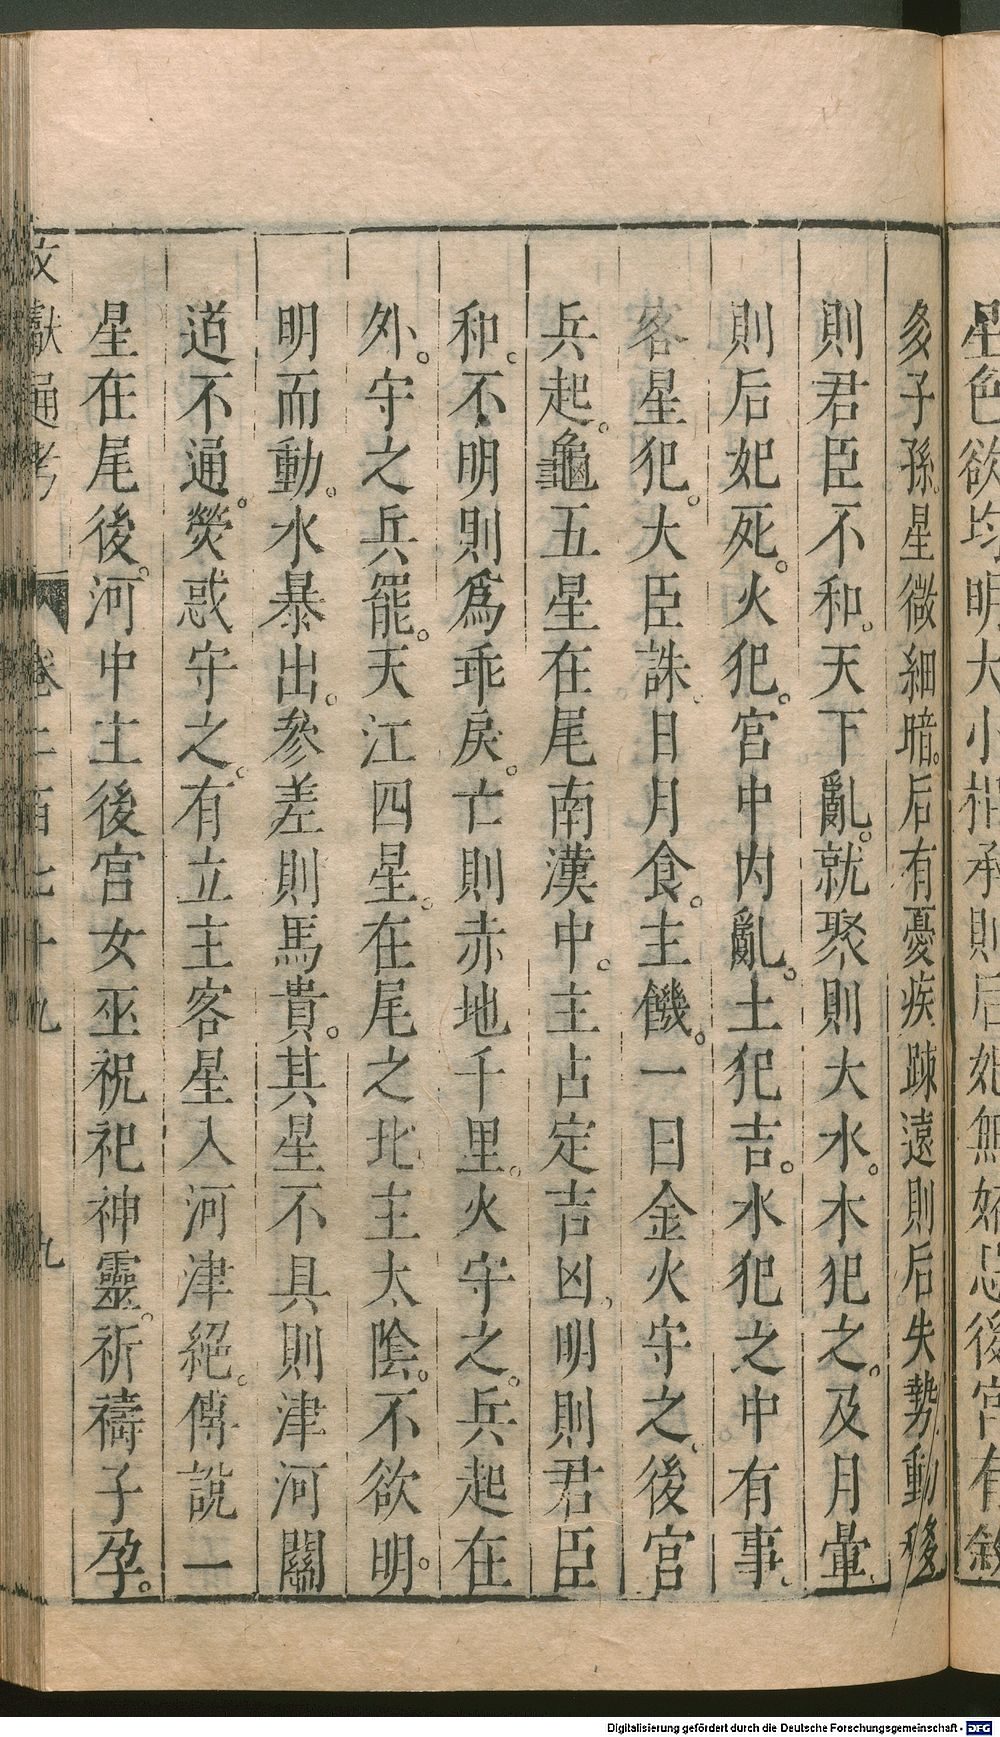 星色欲均明大小相承則后妃無妬忌後宮有敘
多子孫。星微細暗。后有憂疾踈遠則后失勢動移
則君臣不和。天下亂。就聚則大水。木犯之。及月暈、
則后妃死。火犯。宮中內亂。土犯吉。水犯之中有事、
客星犯。大臣誅、日月食。主饑。一曰金火守之。後宮
兵起。龜五星在尾南漢中。主占定吉凶、明則君臣
和。不明則爲乖戾。亡則赤地千里。火守之。兵起在
外。守之兵罷。天江四星。在尾之北主太陰。不欲明。
明而動。水暴出。參差則馬貴。其星不具則津河關
道不通。熒惑守之。有立主客星入河津絕。傳說一
星在尾後。河中主後宮女巫祝祀神靈。祈禱子孕。
文獻通考 卷二百七十九 九
Digitalisierung gefördert durch die Deutsche Forschungsgemeinschaft - DFG